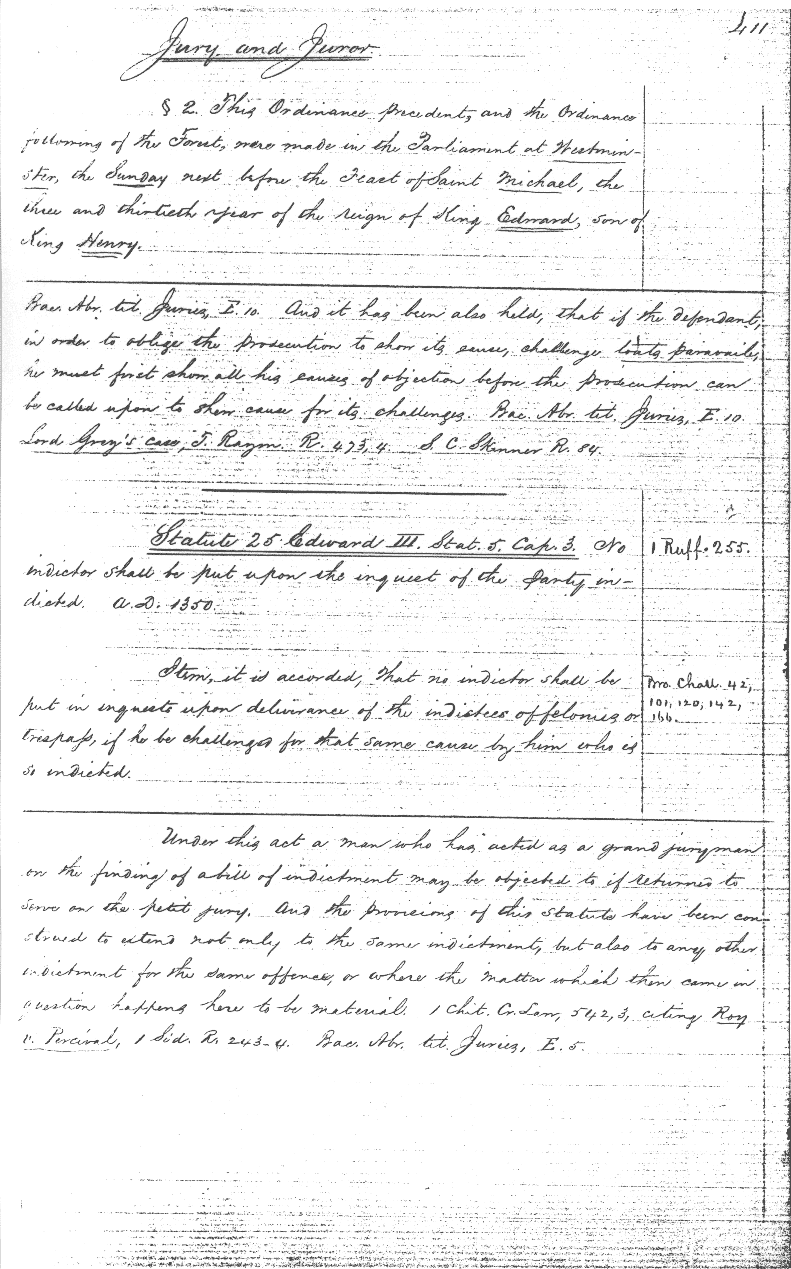 411
Jury and Juror.
§ 2. This Ordinance precedent, and the Ordinance
following of the Forest, were made in the Parliament at Westmin-
ster, the Sunday next before the Feast of Saint Michael, the
three and thirtieth year of the reign of King Edward, son of
King Henry.
Bac. Abr. tit. Juries, E. 10. And it has been also held, that if the defendant,
in order to oblige the prosecution to show its cause, challenge touts paravaile,
he must first show all his causes of objection before the prosecution can
be called upon to shew cause for its challenges. Bac. Abr. tit. Juries, E. 10.
Lord Grey's case, T. Raym. R. 473,4. S. C. Skinner R. 84.
Statute 25 Edward III. Stat. 5. Cap. 3. No
1 Ruff. 255.
indictor shall be put upon the inquest of the party in-
dicted. A.D. 1350.
Item, it is accorded, that no indictor shall be
put in inquests upon deliverance of the indictees of felonies or
trespass, if he be challenged for that same cause by him who is
so indicted.
Bro. Chall. 42,
101, 120, 142,
166.
Under this act a man who has acted as a grand juryman
on the finding of a bill of indictment may be objected to if returned to
serve on the petit jury. And the provisions of this statute have been con-
strued to extend not only to the same indictment, but also to any other
indictment for the same offence, or where the matter which then came in
question happens here to be material. 1 Chit. Cr. Law, 542,3, citing Roy
v. Percival, 1 Sid. R. 243-4. Bac. Abr. tit. Juries, E. 5.